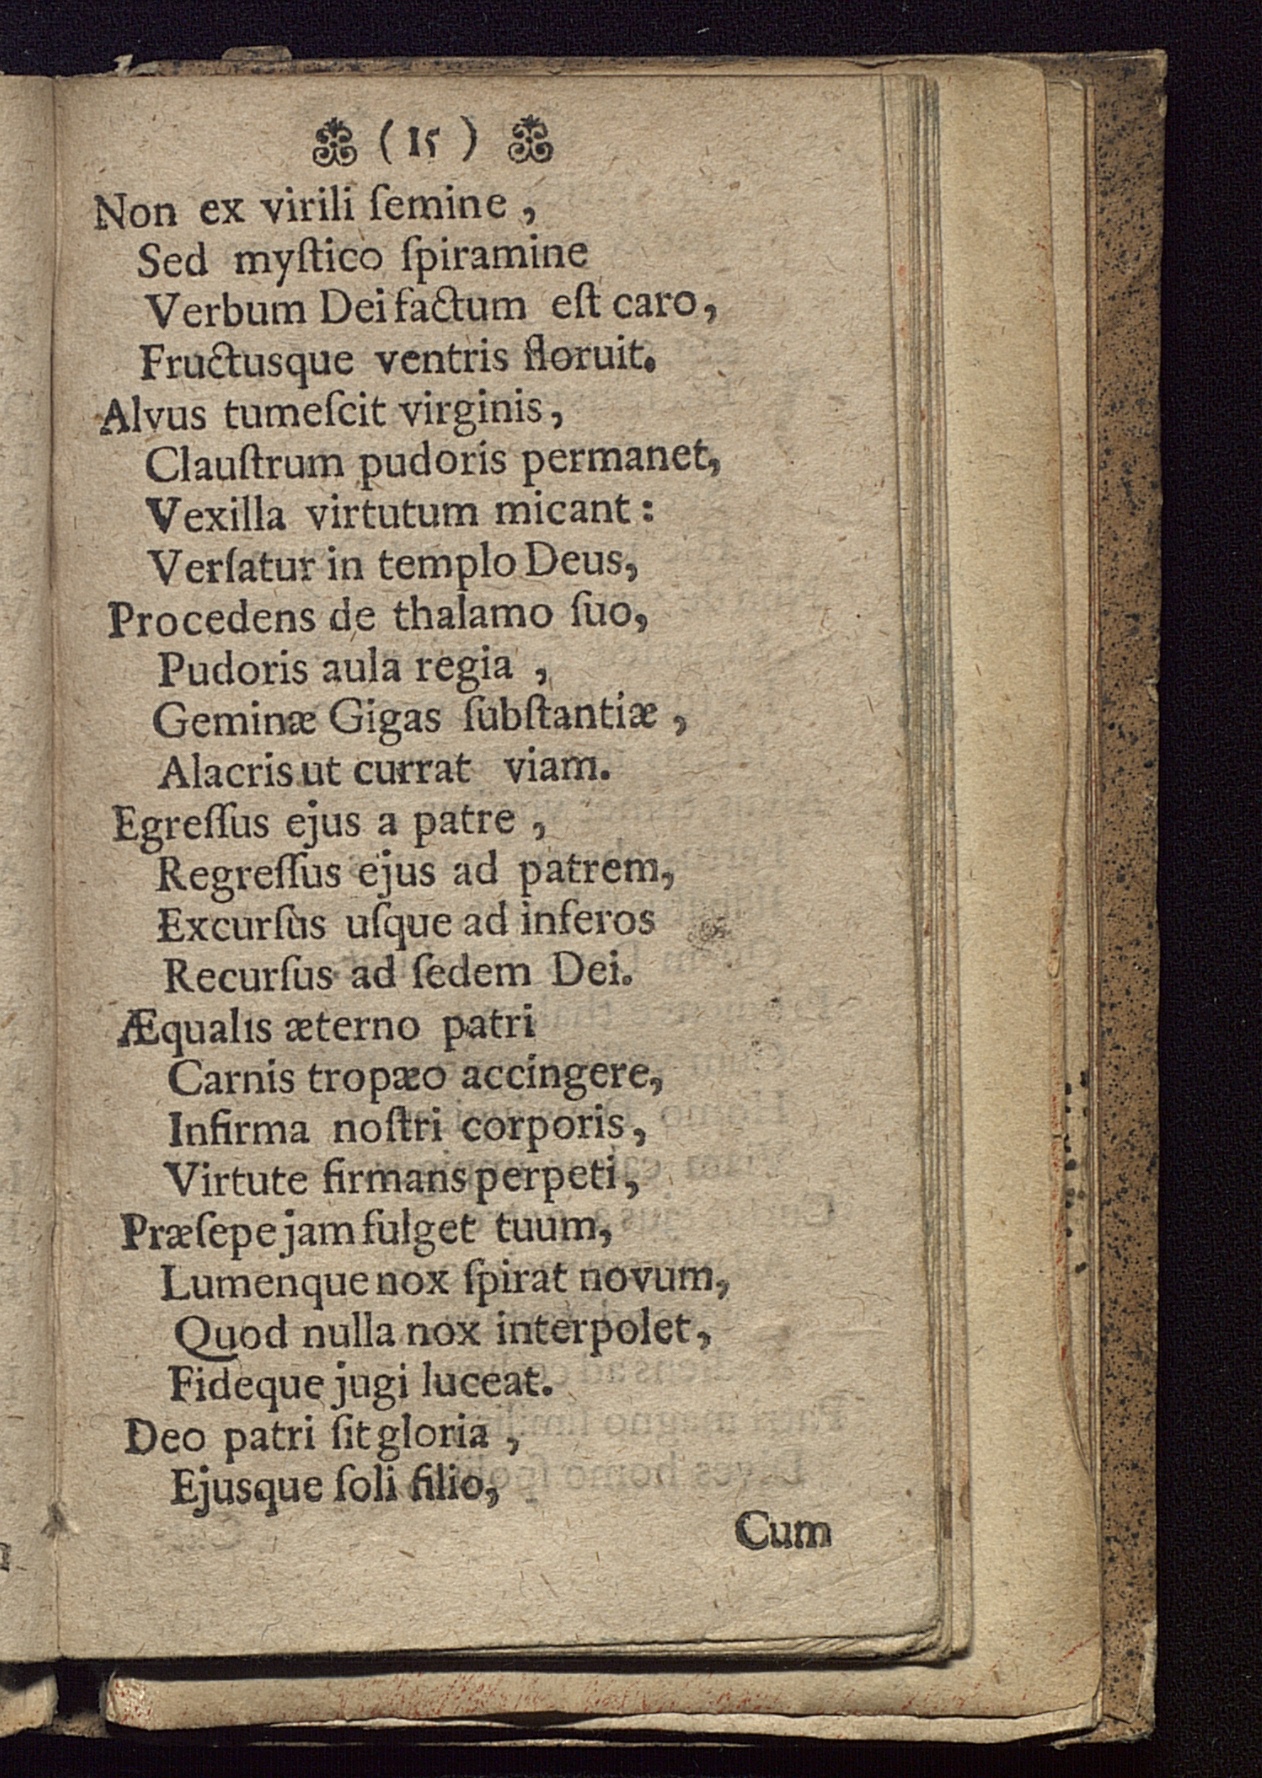 ( 15 )
Non ex virili ſemine ,
Sed myſtico ſpiramine
Verbum Dei factum eſt caro,
Fructusque ventris floruit.
Alvus tumeſcit virginis,
Clauſtrum pudoris permanet,
Vexilla virtutum micant:
Verſatur in templo Deus,
Procedens de thalamo ſuo,
Pudoris aula regia ,
Geminæ Gigas ſubſtantiæ ,
Alacris ut currat viam.
Egreſſus ejus a patre ,
Regreſſus ejus ad patrem,
Excurſus uſque ad inferos
Recurſus ad ſedem Dei.
Æqualis æterno patri
Carnis tropæo accingere,
Infirma noſtri corporis,
Virtute firmans perpeti,
Præſepe jam fulget tuum,
Lumenque nox ſpirat novum,
Quod nulla nox interpolet,
Fideque jugi luceat.
Deo patri ſit gloria ,
Ejusque ſoli filio,
Cum